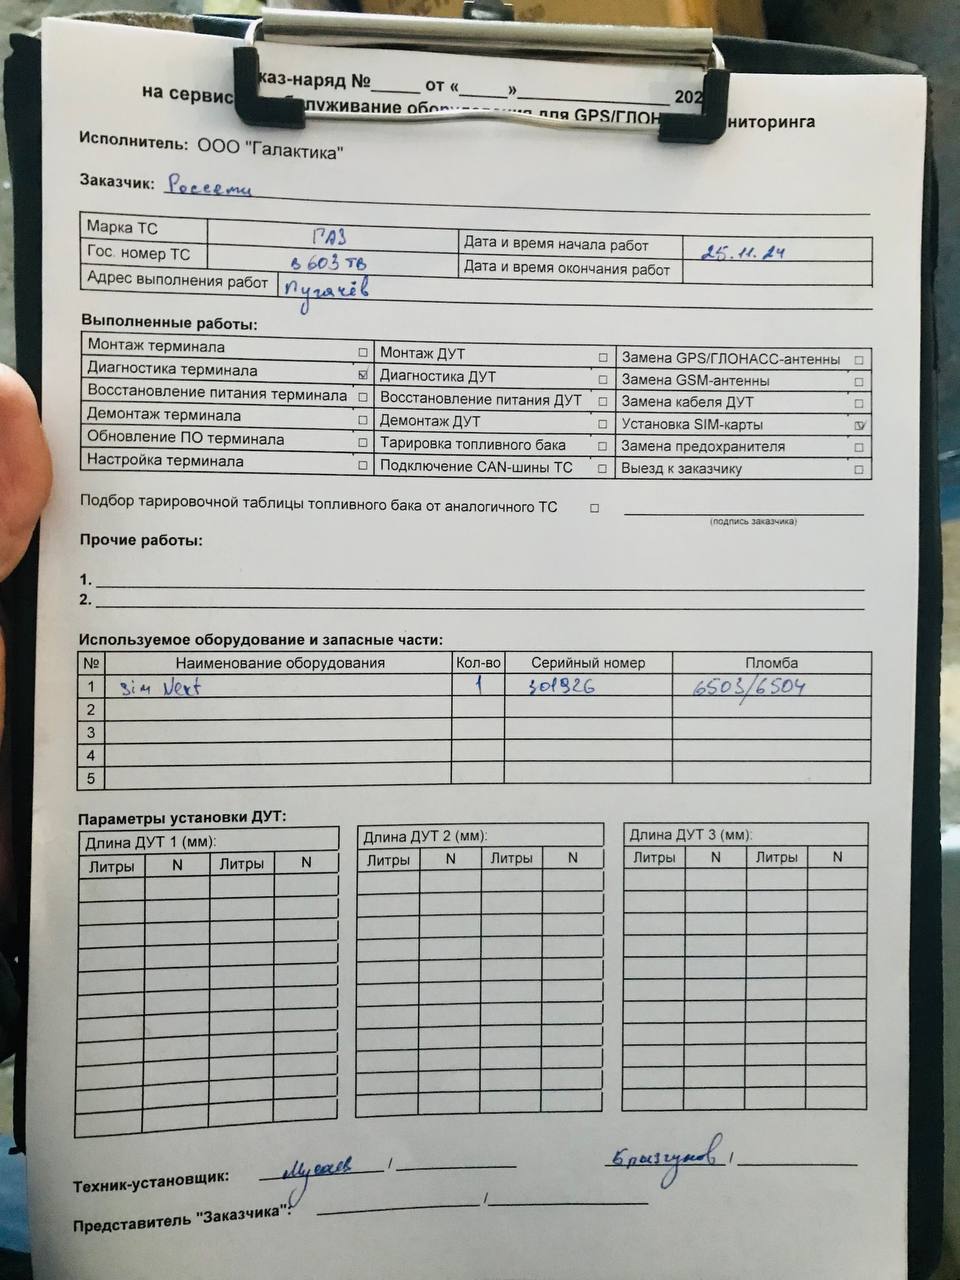 каз-наряд №_____ от «_____»________________ 202
на сервис луживание обор для GPS/ГЛОН ниторинга
Исполнитель: ООО "Галактика"
Заказчик: Россети
Марка ТС ГАЗ Дата и время начала работ 25.11.24
Гос. номер ТС в 603 тв Дата и время окончания работ
Адрес выполнения работ Пугачёв
Выполненные работы:
Монтаж терминала ☐ Монтаж ДУТ ☐ Замена GPS/ГЛОНАСС-антенны ☐
Диагностика терминала ☑ Диагностика ДУТ ☐ Замена GSM-антенны ☐
Восстановление питания терминала ☐ Восстановление питания ДУТ ☐ Замена кабеля ДУТ ☐
Демонтаж терминала ☐ Демонтаж ДУТ ☐ Установка SIM-карты ☑
Обновление ПО терминала ☐ Тарировка топливного бака ☐ Замена предохранителя ☐
Настройка терминала ☐ Подключение CAN-шины ТС ☐ Выезд к заказчику ☐
Подбор тарировочной таблицы топливного бака от аналогичного ТС ☐
(подпись заказчика)
Прочие работы:
1.
2.
Используемое оборудование и запасные части:
№ Наименование оборудования Кол-во Серийный номер Пломба
1 Sim Next 1 301926 6503/6504
2
3
4
5
Параметры установки ДУТ:
Длина ДУТ 1 (мм): Длина ДУТ 2 (мм): Длина ДУТ 3 (мм):
Литры N Литры N Литры N Литры N Литры N Литры N
Техник-установщик: Мусаев / Брызгунов /
Представитель "Заказчика": /